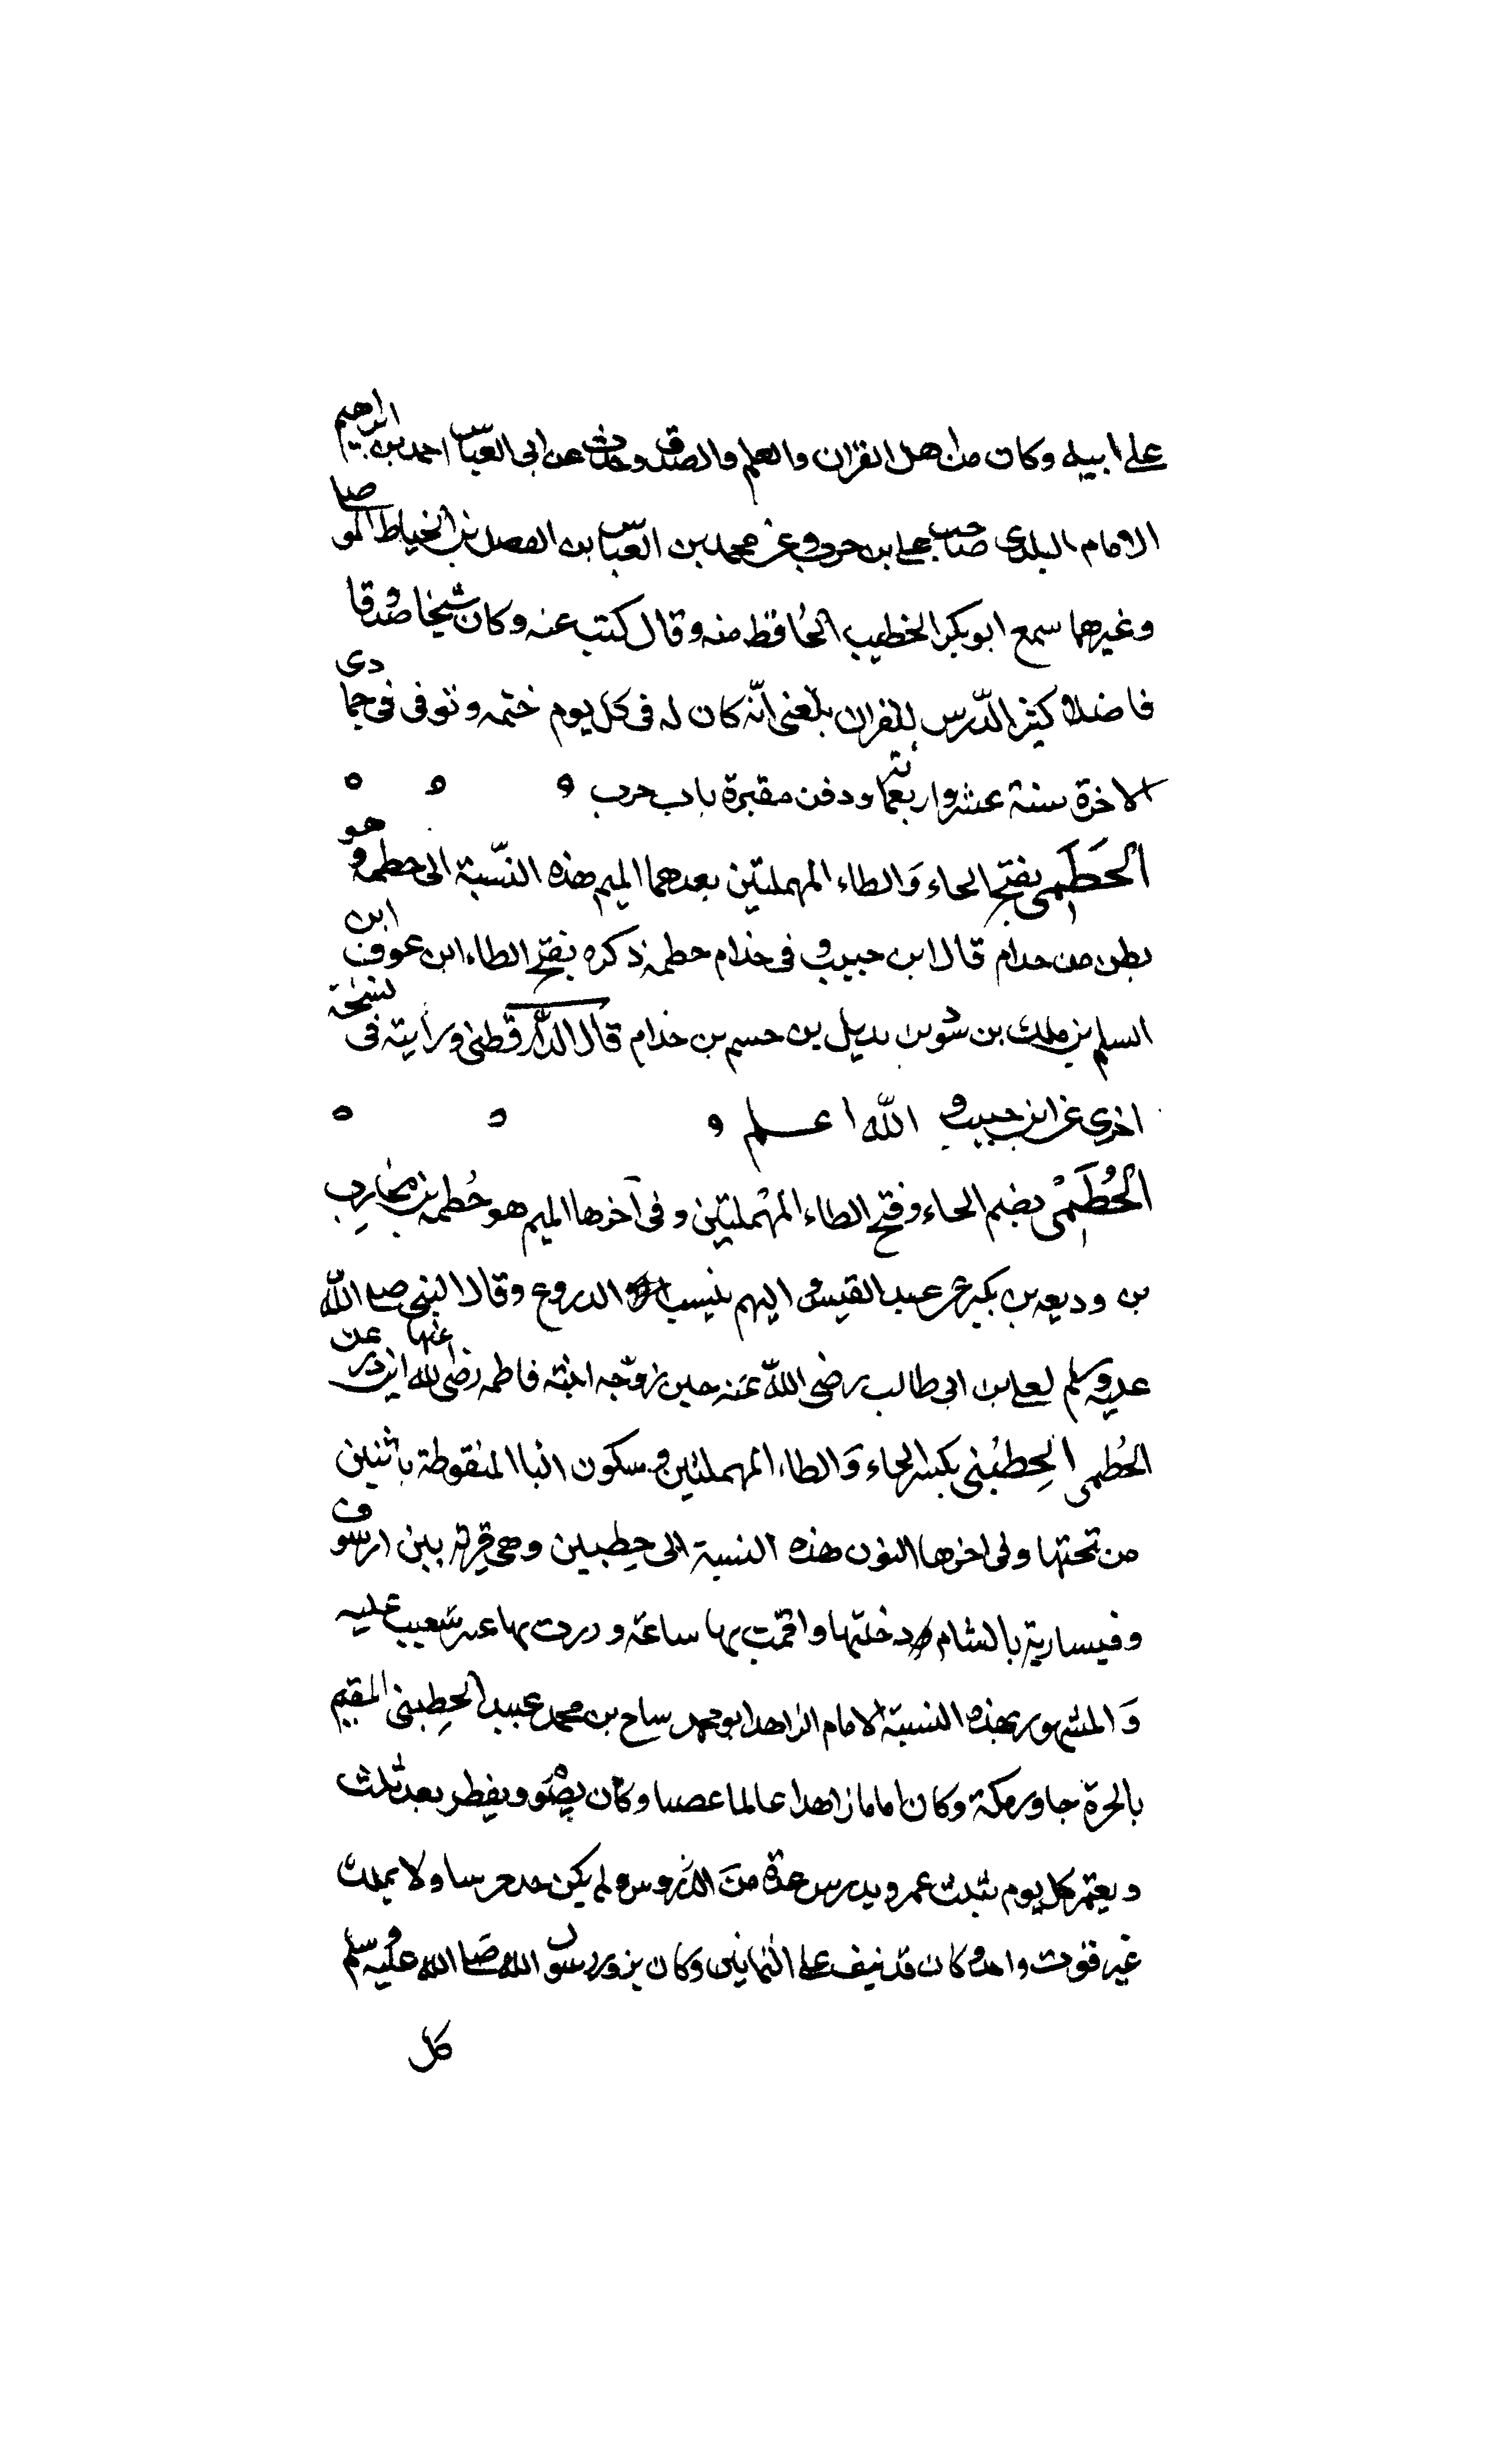 على ابيه وكان من اهل القران والعلم والصدق وحدث عن ابى العباس احمد بن ابرهيم
الامام البلدى صاحب على بن حرب وعن محمد بن العباس بن الفضل بن الخياط الموصلى
وغيرهما سمع ابو بكر الخطيب الحافظ منه وقال كتبت عنه وكان شيخا صدوقا
فاضلا كثير الدّرس للقران بلغنى انّه كان له فى كل يوم ختمه وتوفى فى جمادى
الاخرة سنة عشر واربعمائة ودفن مقبرة باب حرب
الحَطَمى بفتح الحاء وَالطاء المهملتين بعدهما الميم هذه النّسبة الى حطمه وهو
بطن من جدام قال ابن حبيب وفى جذام حطمه ذكره بفتح الطاء ابن عوف ابن
السلم بن ملك بن شود بن بديل بن حسم بن جذام قال الدار قطنى ورايته فى نسخة
اخرى عن ابن حبيب والله اعلم
الحُطَمىْ بضم الحاء وفتح الطاء المهملتين وفى آخرها الميم هو حُطمه بن محارِب
بن وديعه بن بكير عبد القيس اليهم ينسب الدروع وقال النبى صلى الله
عليه وسلم لعلى بن ابى طالب رضى اللّه عنه حين زوّجه ابنته فاطمه رضى الله عنها اين درعك
الحُطمى الحِطينى بكسر الحاء وَالطاء المهملتين وسكون اليا المنقوطة باثنين
من تحتها وفى اخرها النون هذه النسبة الى حِطين وهى قرية بين ارسوف
وقيسارية بالشام دخلتها واقمت بها ساعة وزرت بها قبر شعيب عليه
وَالمشهور بهذه النسبة الامام الزاهد ابو محمد ساج بن محمد عبيد الحِطينى المقيم
بالحرة جاور مكة وكان اماما زاهدا عالما وكان يصوم ويفطر بعد ثلث
ويعتمر كل يوم ثلث عمر ويدرس عدة منَ الدروس ولم يكن ولا يملك
غير قوت واحد وكان قد نيف على الثمانين وكان يزور رسول الله صلى الله عليه وسلم
كل